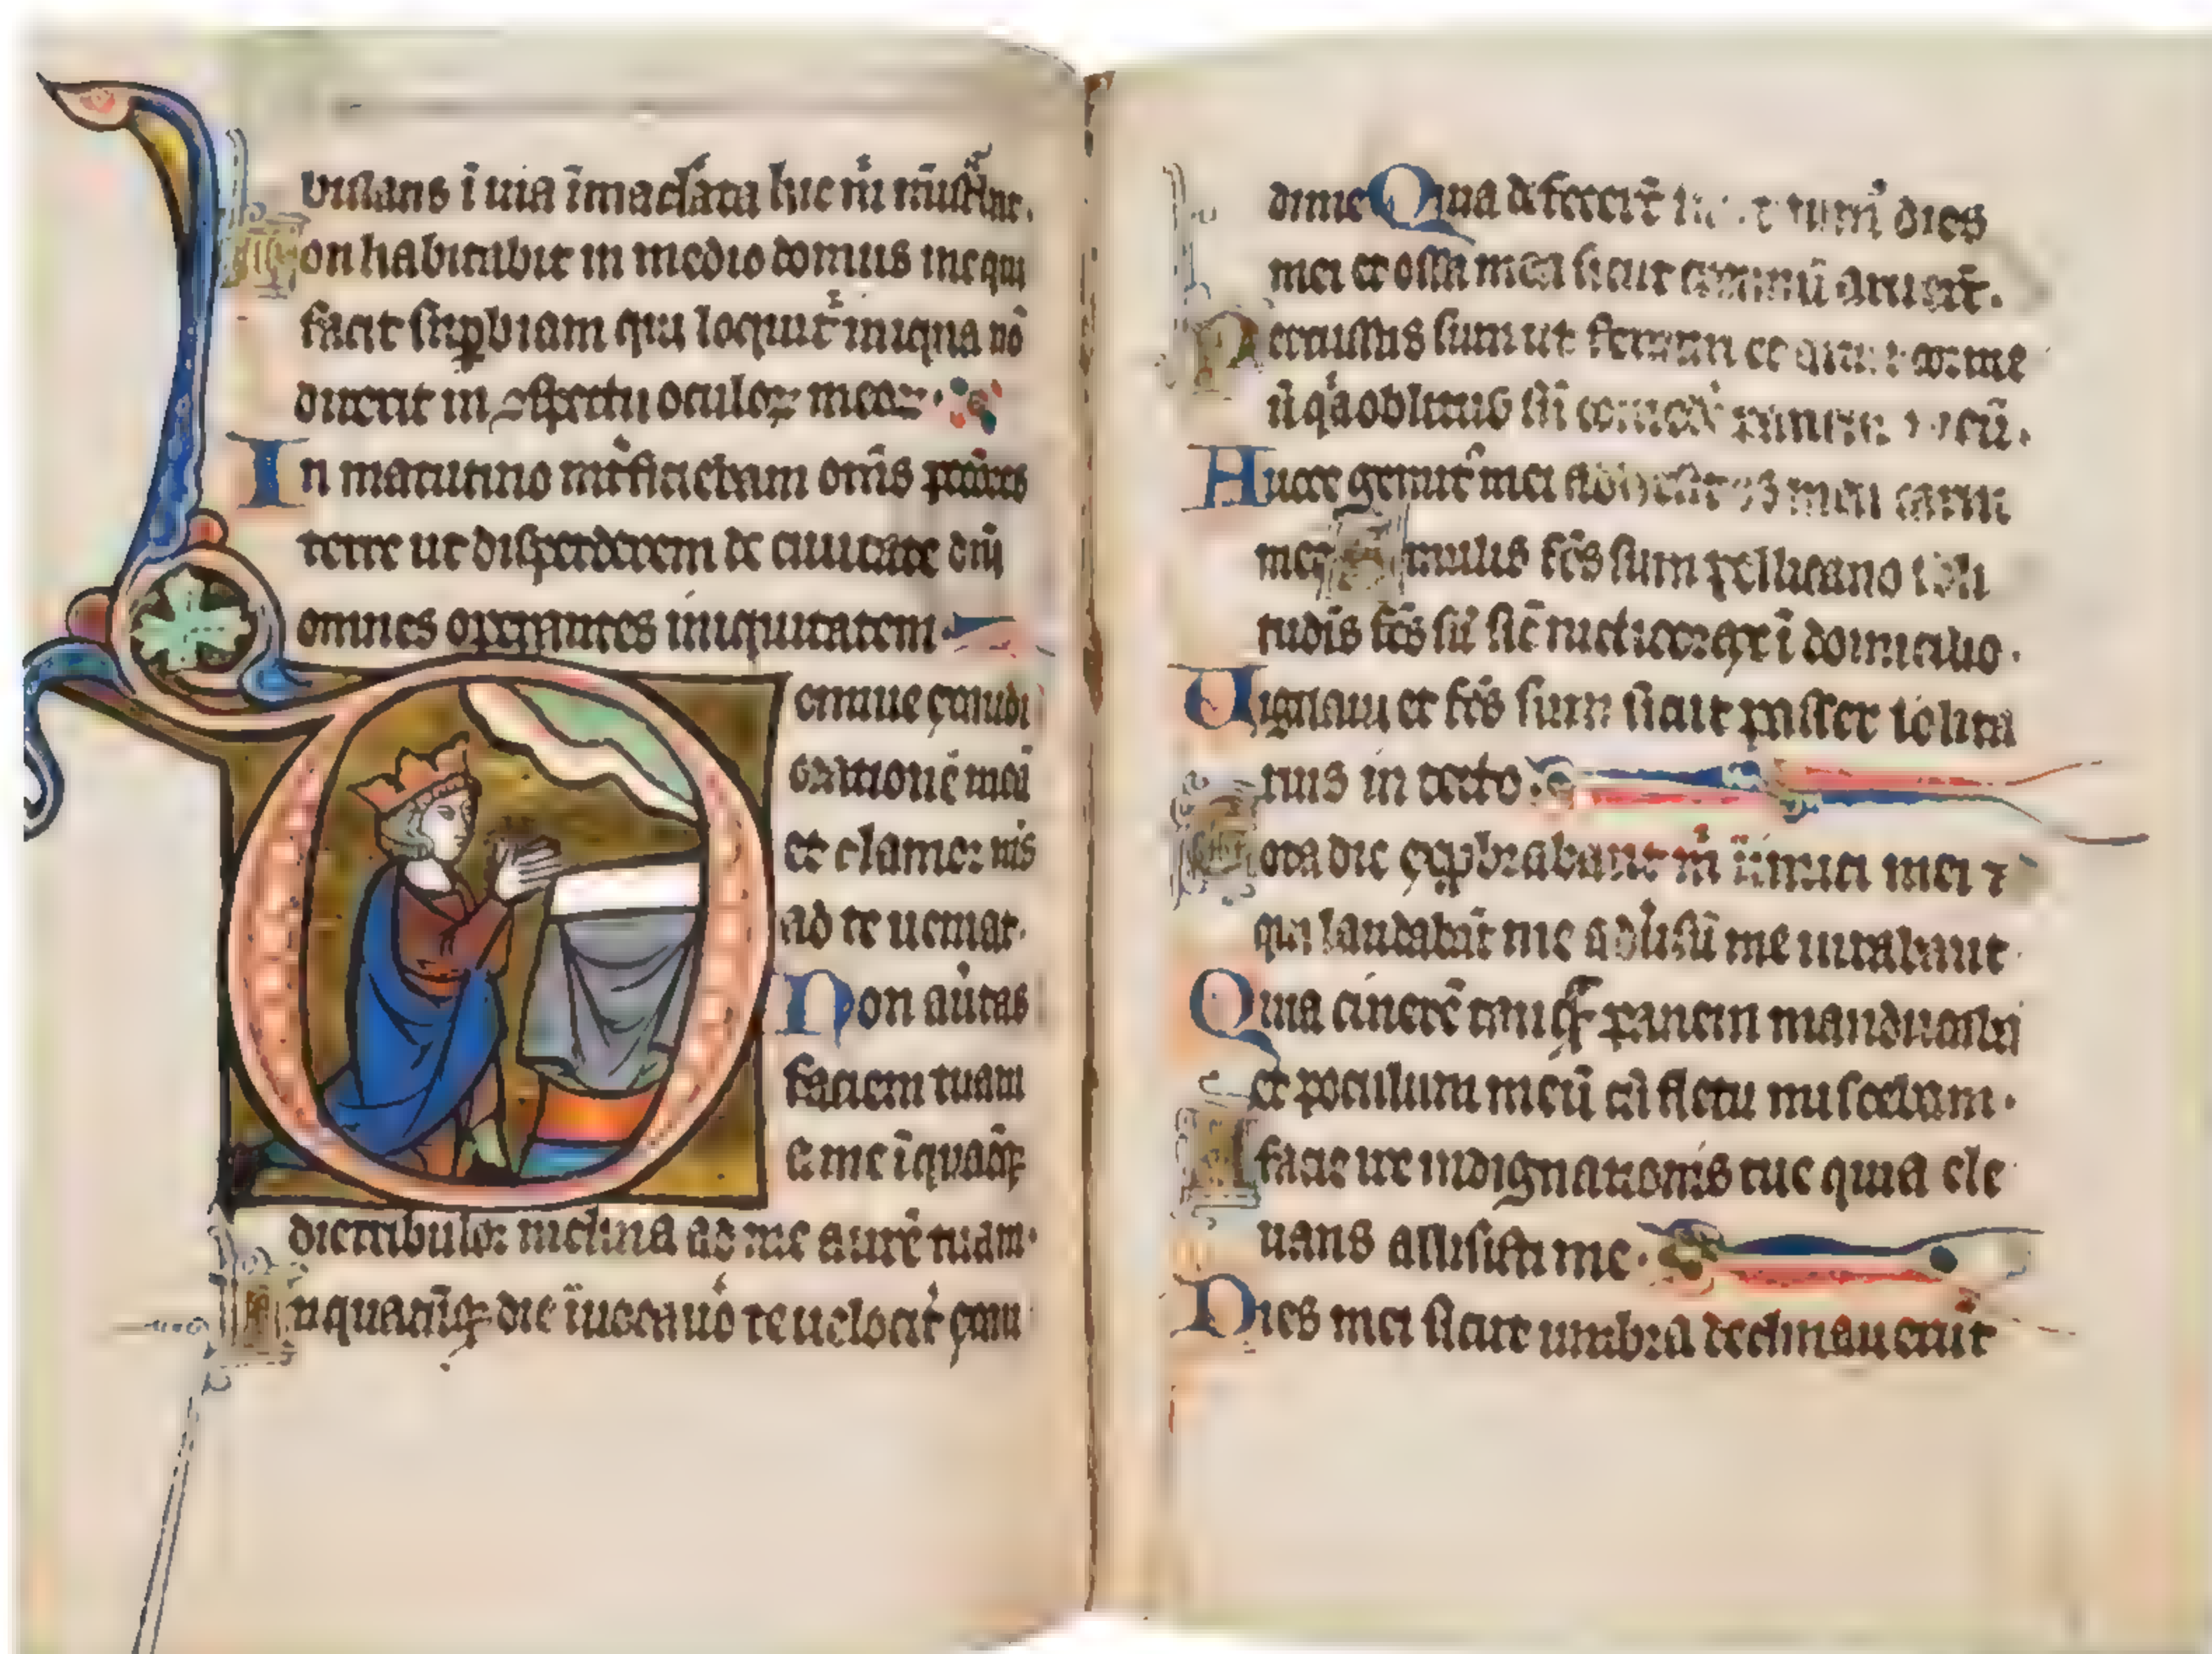 bulans ī uia īmac̄lata hic m̄ mīstͣbat.
Non habitabit in medio domus mee qui
facit suꝑbiam qui loquit̄ iniqua nō
direxit in ꝯspectu oculoꝝ meoꝝ.
In matutino int̄ficiebam om̄s pctōres
terre ut disperderem de ciuitate dn̄i
omnes operantes iniquitatem.
Domine exaudi
orationē meā
et clamor m̄s
ad te ueniat.
Non au̓tas
faciem tuam
a me ī quacūqꝫ
die tribulor inclina ad me aurē tuam.
In quacūqꝫ die īuocauo̓ te uelocit̓ exau
di me Quia defecert̄ dies
mei et ossa mea sicut aruert̄.
Percussus sum ut fenum et cor me
ū q̓a oblitus sū comed̓e panem meū.
A uoce gemit̓ mei adhesit os meū carni
mee Similis fc̄s sum pellicano soli
tudīs fc̄s sū sic̄ nicticorax ī domicilio.
Uigilaui et fc̄s sum sicut passer solita
rius in tecto.
Tota die exprobrabant m̄ inimici mei ⁊
qui laudabāt me adu̓sū me iurabant.
Quia cinerē tanqͣ panem manducabā
et poculum meū cū fletu miscebam.
A facie ire indignationis tue quia ele
uans allisisti me.
Dies mei sicut umbra declinauerūt